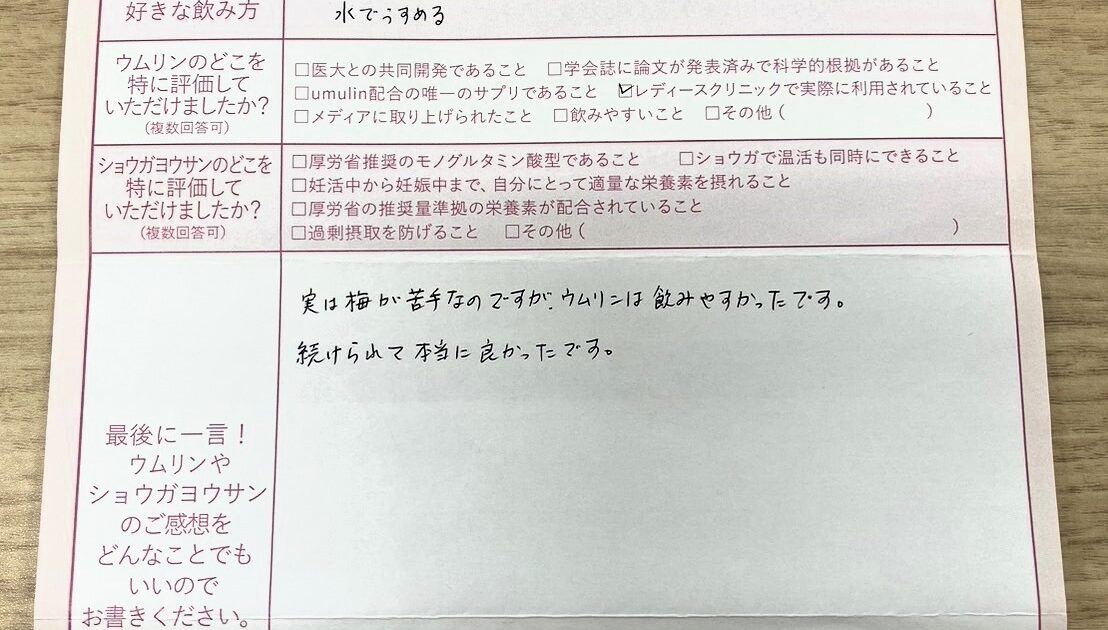 好きな飲み方
水でうすめる
ウムリンのどこを
特に評価して
いただけましたか?
(複数回答可)
□医大との共同開発であること □学会誌に論文が発表済みで科学的根拠があること
□umulin配合の唯一のサプリであること ☑レディースクリニックで実際に利用されていること
□メディアに取り上げられたこと □飲みやすいこと □その他 ( )
ショウガヨウサンのどこを
特に評価して
いただけましたか?
(複数回答可)
□厚労省推奨のモノグルタミン酸型であること □ショウガで温活も同時にできること
□妊活中から妊娠中まで、自分にとって適量な栄養素を摂れること
□厚労省の推奨量準拠の栄養素が配合されていること
□過剰摂取を防げること □その他 ( )
実は梅が苦手なのですが、ウムリンは飲みやすかったです。
続けられて本当に良かったです。
最後に一言!
ウムリンや
ショウガヨウサン
のご感想を
どんなことでも
いいので
お書きください。